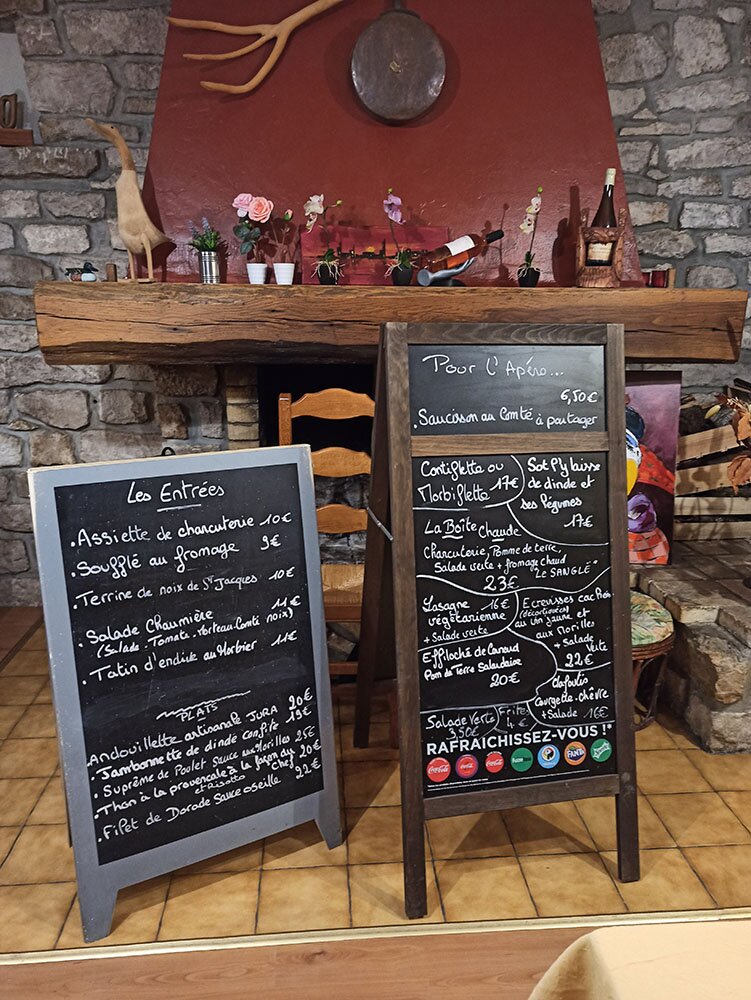 Les Entrées
. Assiette de charcuterie 10€
. Soufflé au fromage 9€
. Terrine de noix de St Jacques 10€
. Salade Chaumière 11€
(Salade. Tomate. Morteau. Comté noix)
. Tatin d'endive au Morbier 11€
PLATS
. Andouillette artisanale JURA 20€
. Jambonnette de dinde confite 19€
. Suprême de Poulet Sauce aux Morilles 25€
. Thon à la provençale à la façon du chef 20€
et Risotto
. Filet de Dorade Sauce oseille 22€
Pour l'Apéro...
6,50€
. Saucisson au Comté à partager
Contiflette ou
Morbiflette 17€
Sot l'y laisse
de dinde et
ses légumes
17€
La Boîte Chaude
Charcuterie, Pomme de terre,
Salade verte + fromage chaud
"Le SANGLÉ"
23€
Lasagne 16€
végétarienne
+ Salade verte
Ecrevisses
(décortiquées)
au vin jaune et
aux Morilles
+ Salade
Verte
22€
Effiloché de Canard
Pom de Terre Salardaise
20€
Clafoutis
Courgette-chèvre
+ Salade 16€
Salade Verte
3,50€
Frites
4€
RAFRAICHISSEZ-VOUS !*
Coca-Cola
Coca-Cola
Coca-Cola
FANTA